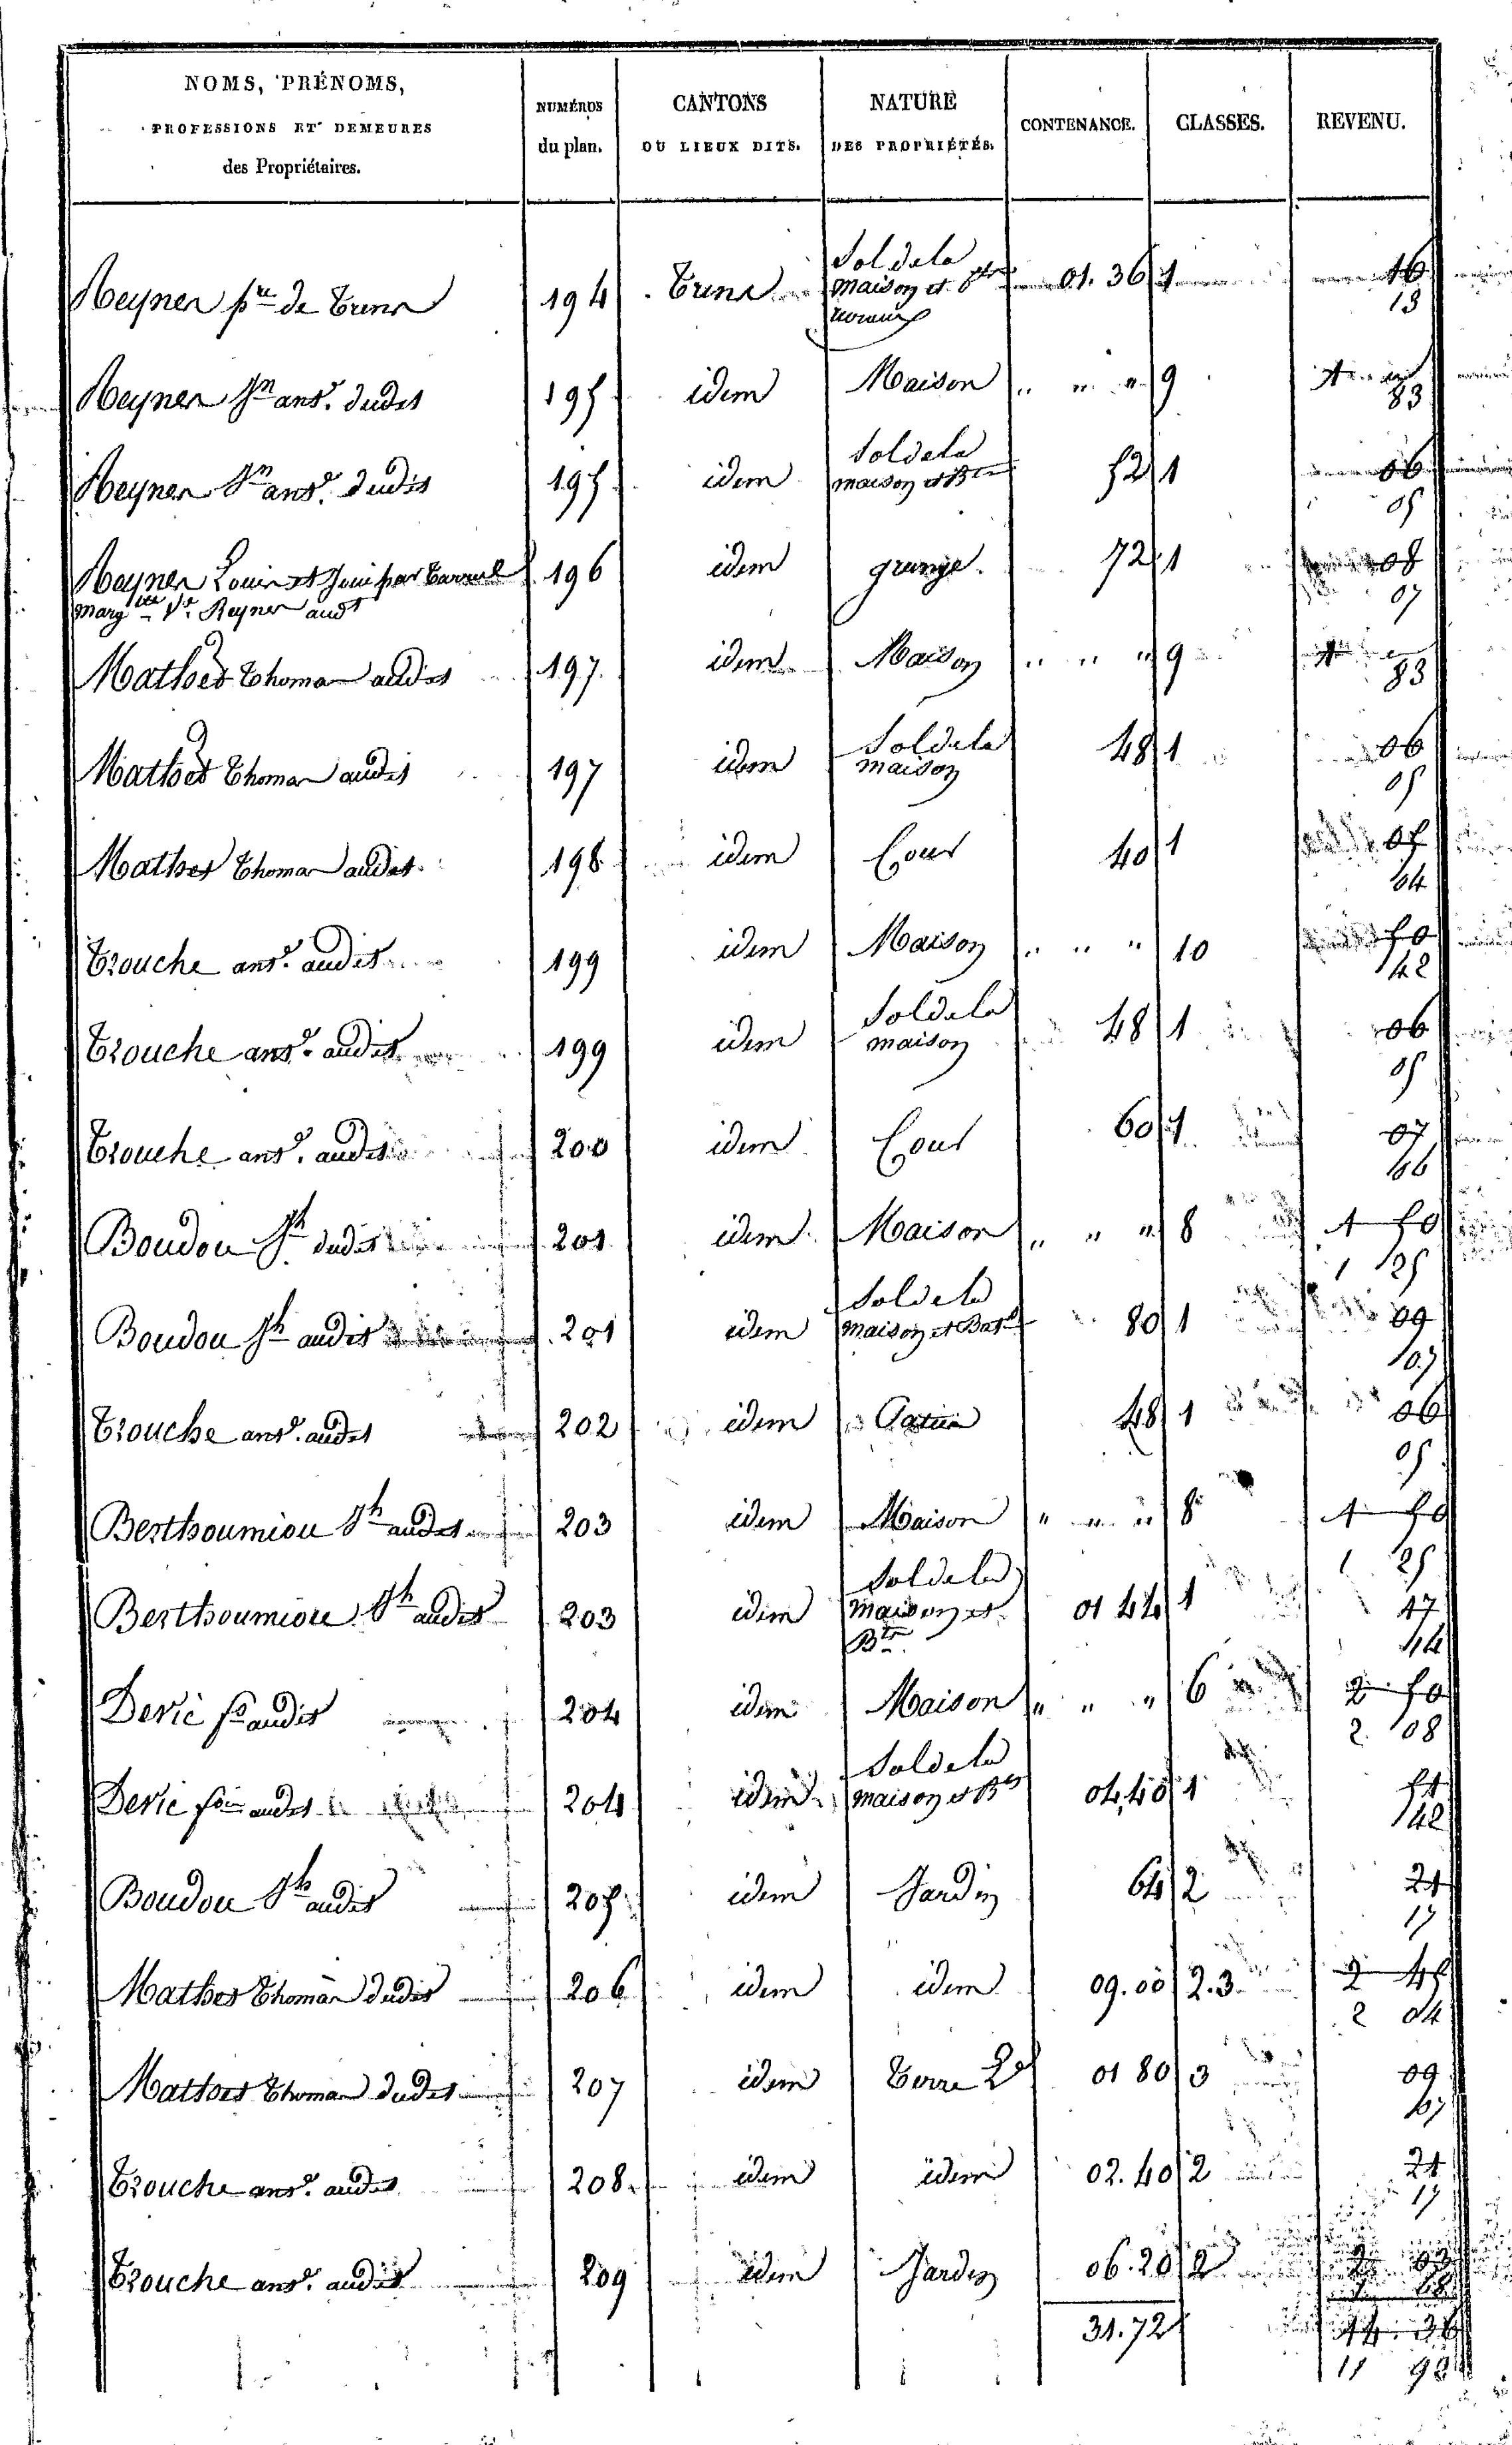 NOMS, PRÉNOMS,
PROFESSIONS ET DEMEURES
des Propriétaires.
NUMÉROS
du plan.
CANTONS
OU LIEUX DITS.
NATURE
DES PROPRIÉTÉS.
CONTENANCE.
CLASSES.
REVENU.
Sol de la
Reyner pre de Trens 194 Trens maison et Btm 01.36 1 16
13
Reyner Jn ant. dudit 195 idem Maison " " " 9
83
Sol de la
Reyner Jn ant. dudit 195 idem maison et Btm 52 1 06
05
Reyner Louis et 196 idem grange. 72 1 08
Margte Ve Reyner audt 07
Mathet Thomas audit 197. idem Maison " " " 9
83
Sol de la
Mathet Thomas audit 197 idem maison 48 1 06
05
Mathet Thomas audit 198 idem Cour 40 1 05
04
Trouche ant. audit 199 idem Maison " " " 10 50
42
Sol de la
Trouche ant. audit 199 idem maison 48 1 06
05
Trouche ant. audit 200 idem Cour 60 1 07
06
Boudou Jh dudit 201 idem Maison " " " 8 1 50
1 25
Sol de la
Boudou Jh audit 201 idem maison et Bat 80 1 09
07
Trouche ant. audit 202 idem Patus 48 1 06
05
Berthoumiou Jh audit 203 idem Maison " " " 8 1 50
1 25
Sol de la
Berthoumiou Jh audit 203 idem maison et 01 44 1 17
Btm 14
Deric fs audit 204 idem Maison " " " 6 2 50
2. 08
Sol de la
Deric fois audit 204 idem maison et Bts 04,40 1 51
42
Boudou Jh audit 205 idem Jardin 64 2 21
17
Mathet Thomas dudit 206 idem idem 09.00 2.3 2 45
2 04
Mathet Thomas dudit 207 idem Terre 01 80 3 09
07
Trouche ant. audit 208. idem idem 02.40 2 21
17
Trouche ant. audit 209 idem Jardin 06.20 2 2 03
1 68
31.72 14. 36
11 98